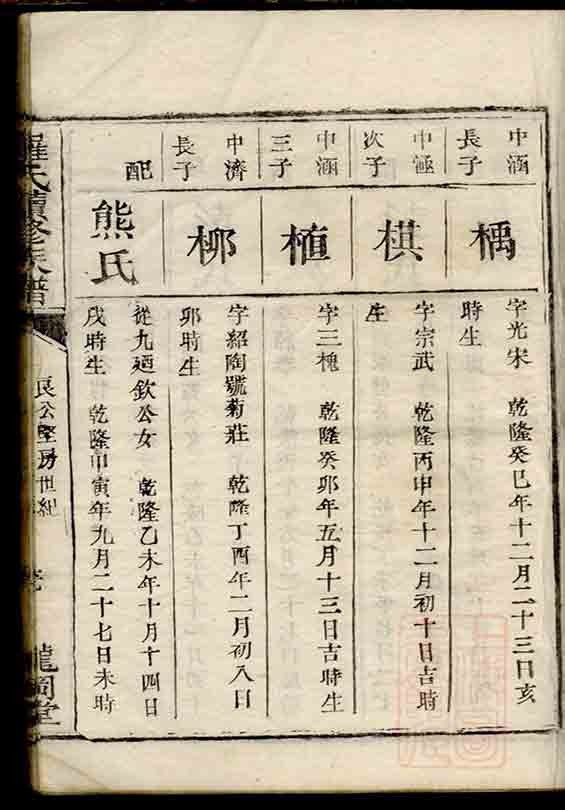 中涵
長子
楀
字光宋 乾隆癸巳年十二月二十三日亥
時生
中涵
次子
棋
字宗武 乾隆丙申年十二月初十日吉時
生
中涵
三子
植
字三槐 乾隆癸卯年五月十三日吉時生
中濟
長子
柳
字紹陶號菊莊 乾隆丁酉年二月初八日
卯時生
配
熊氏
從九廼欽公女 乾隆乙未年十月十四日
戌時生 乾隆甲寅年九月二十七日未時
羅氏續修族譜
良公房世紀
龍圖堂